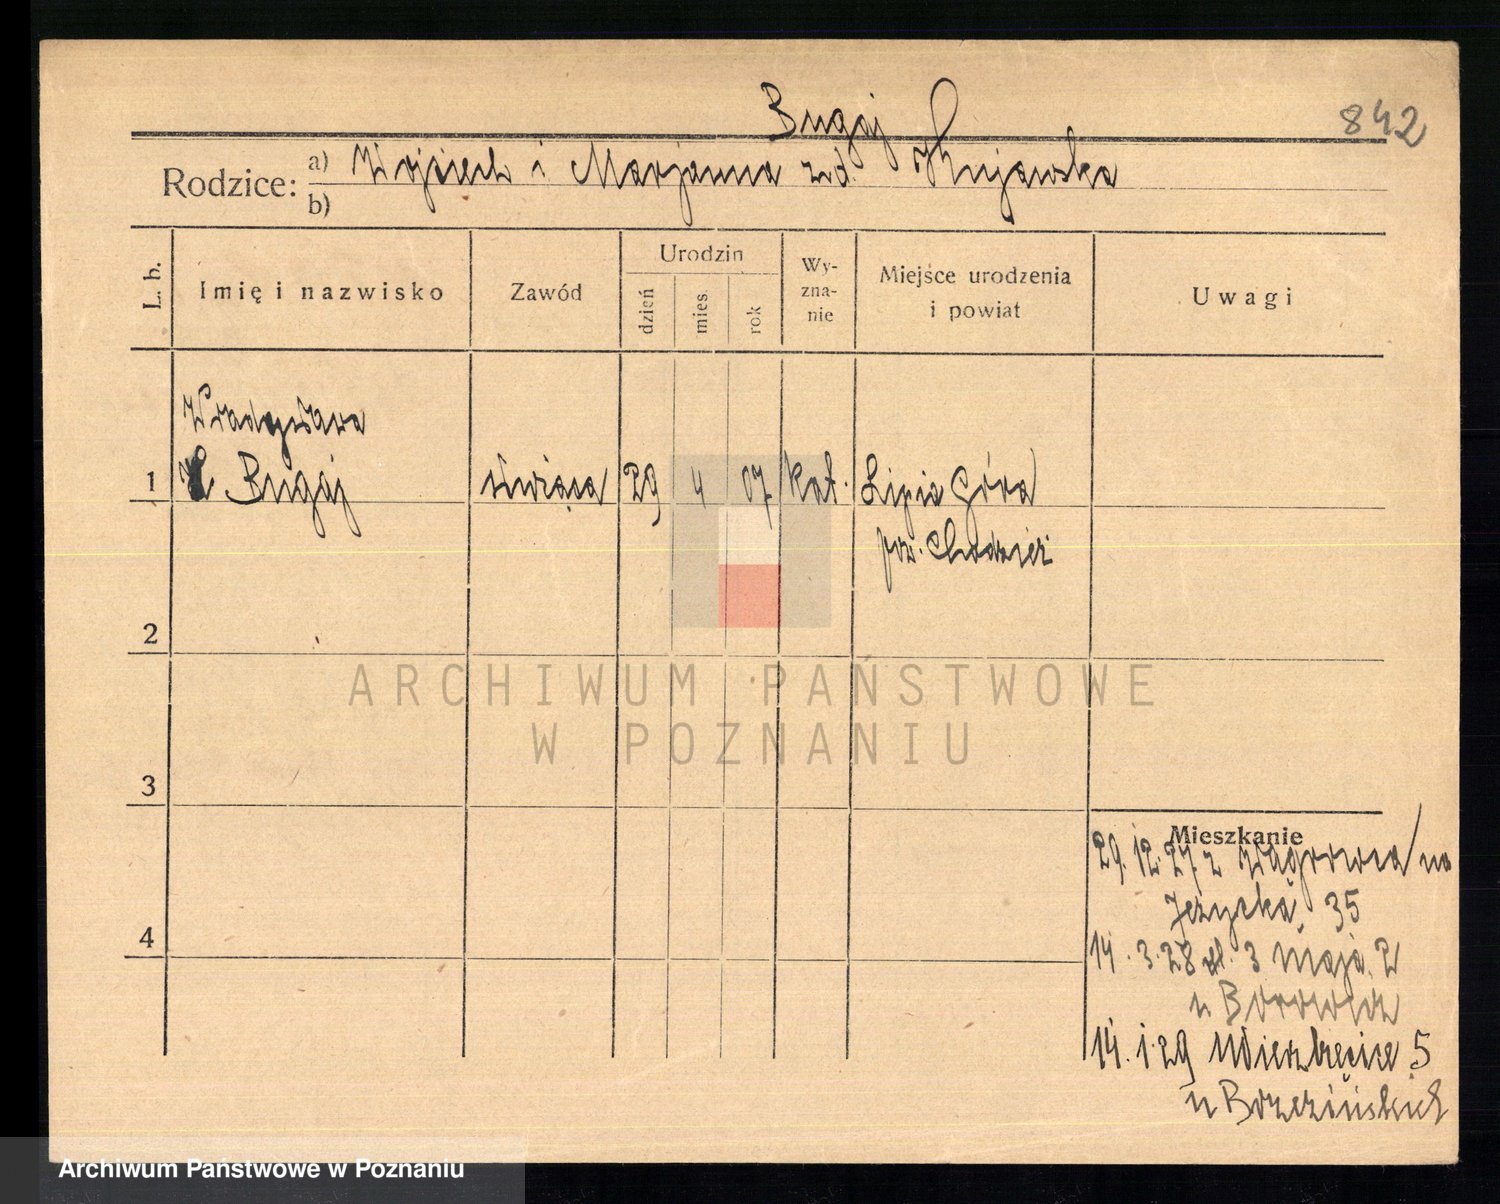 Bugaj
842
Rodzice:
a) Wojciech i Marjanna zd. Kujawska
b)
L. b.
Imię i nazwisko
Zawód
Urodzin
dzień
mies.
rok
Wy-
zna-
nie
Miejsce urodzenia
i powiat
Uwagi
Władysława
1 Bugaj służąca 29 4 07 kat. Lipia Góra
pow. Chodzież
2
3
4
ARCHIWUM PAŃSTWOWE
W POZNANIU
Mieszkanie
29.12.27 z Wągrowca na
Jeżycka 35
14.3.28 pl. 3 maja 2
u Borowicz
14.1.29 Wierzbięcice 5
u Brzezińskich
Archiwum Państwowe w Poznaniu